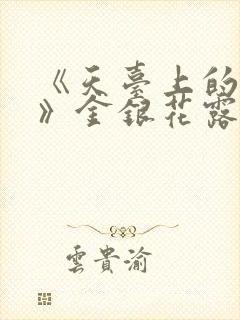 《天臺上的
》金銀花露
雲貴渝